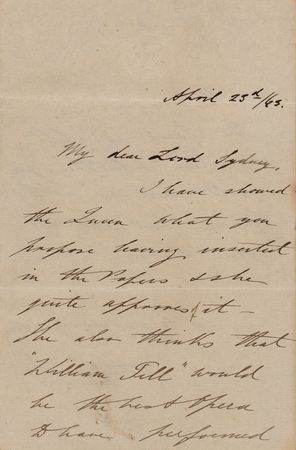 April 23rd/63.
My dear Lord Sydney,
I have showed
the Queen what you
propose having inserted
in the Papers & she
quite approves of it –
She also thinks that
"William Tell" would
be the best Opera
to have performed